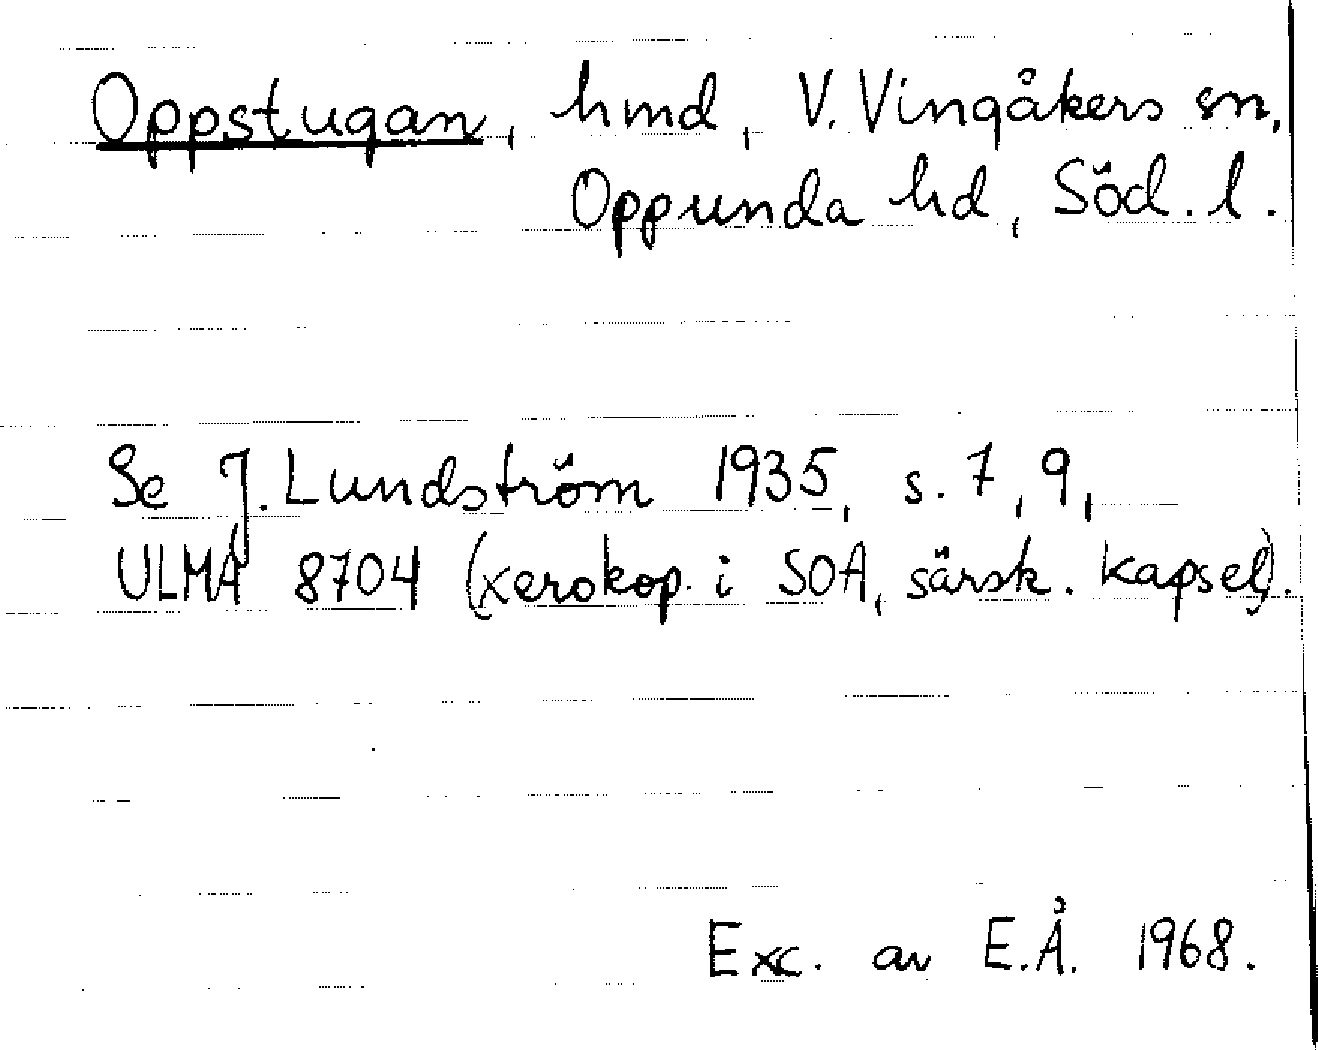 Oppstugan, hmd, V. Vingåkers sn,
Oppunda hd, Söd. l.
Se J. Lundström 1935, s. 7, 9,
ULMA 8704 (xerokop. i SOA, särsk. kapsel).
Exc. av E.Å. 1968.